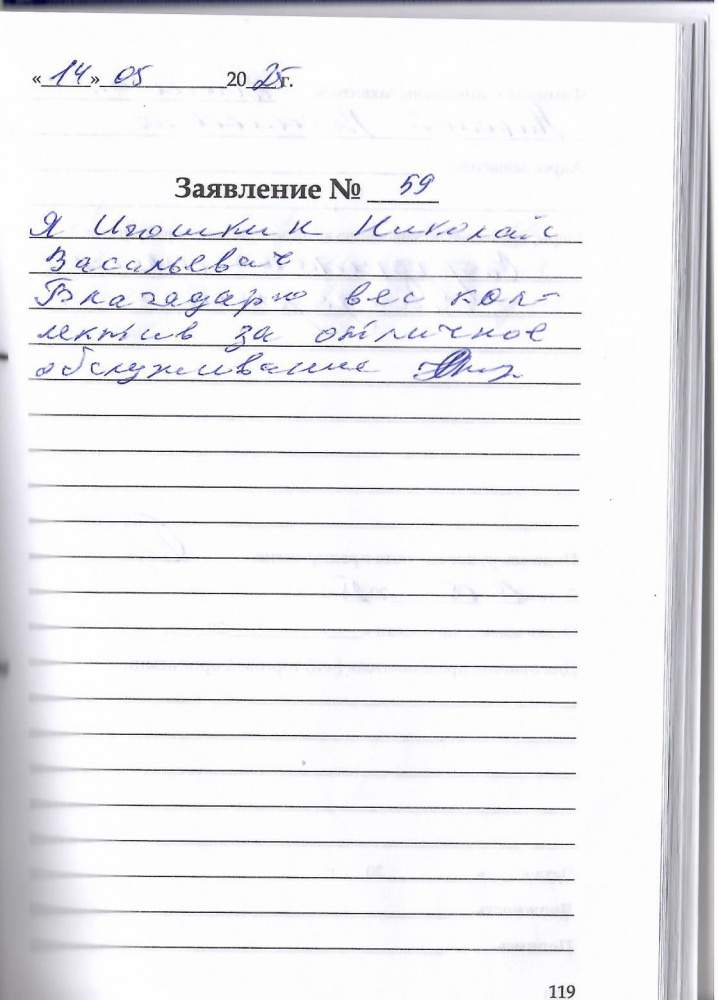 «14» 05 2025г.
Заявление № 59
Я Игошкин Николай
Васильевич
Благадарю вес кол-
лектив за отличное
обслуживание
119